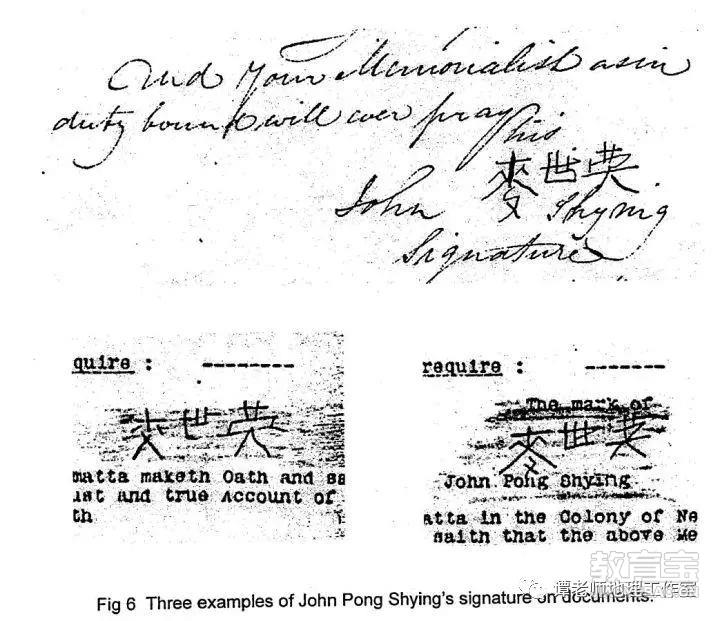 And your Memorialist as in
duty bound will ever pray
his
麥世英
John Shying
Signature
quire : --------
麥世英
matta maketh Oath and sa
ust and true Account of
th
require : -------
The mark of
麥世英
John Pong Shying
atta in the Colony of Ne
saith that the above Me
教育宝
谭老师地理工作室
Fig 6 Three examples of John Pong Shying's signature on documents.